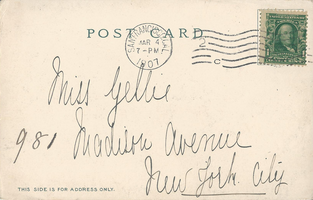 POST CARD
SAN FRANCISCO, CAL.
MAR 4
7-PM
1907
2
C
Miss Yellie
981 Madison Avenue
New York City
THIS SIDE IS FOR ADDRESS ONLY.